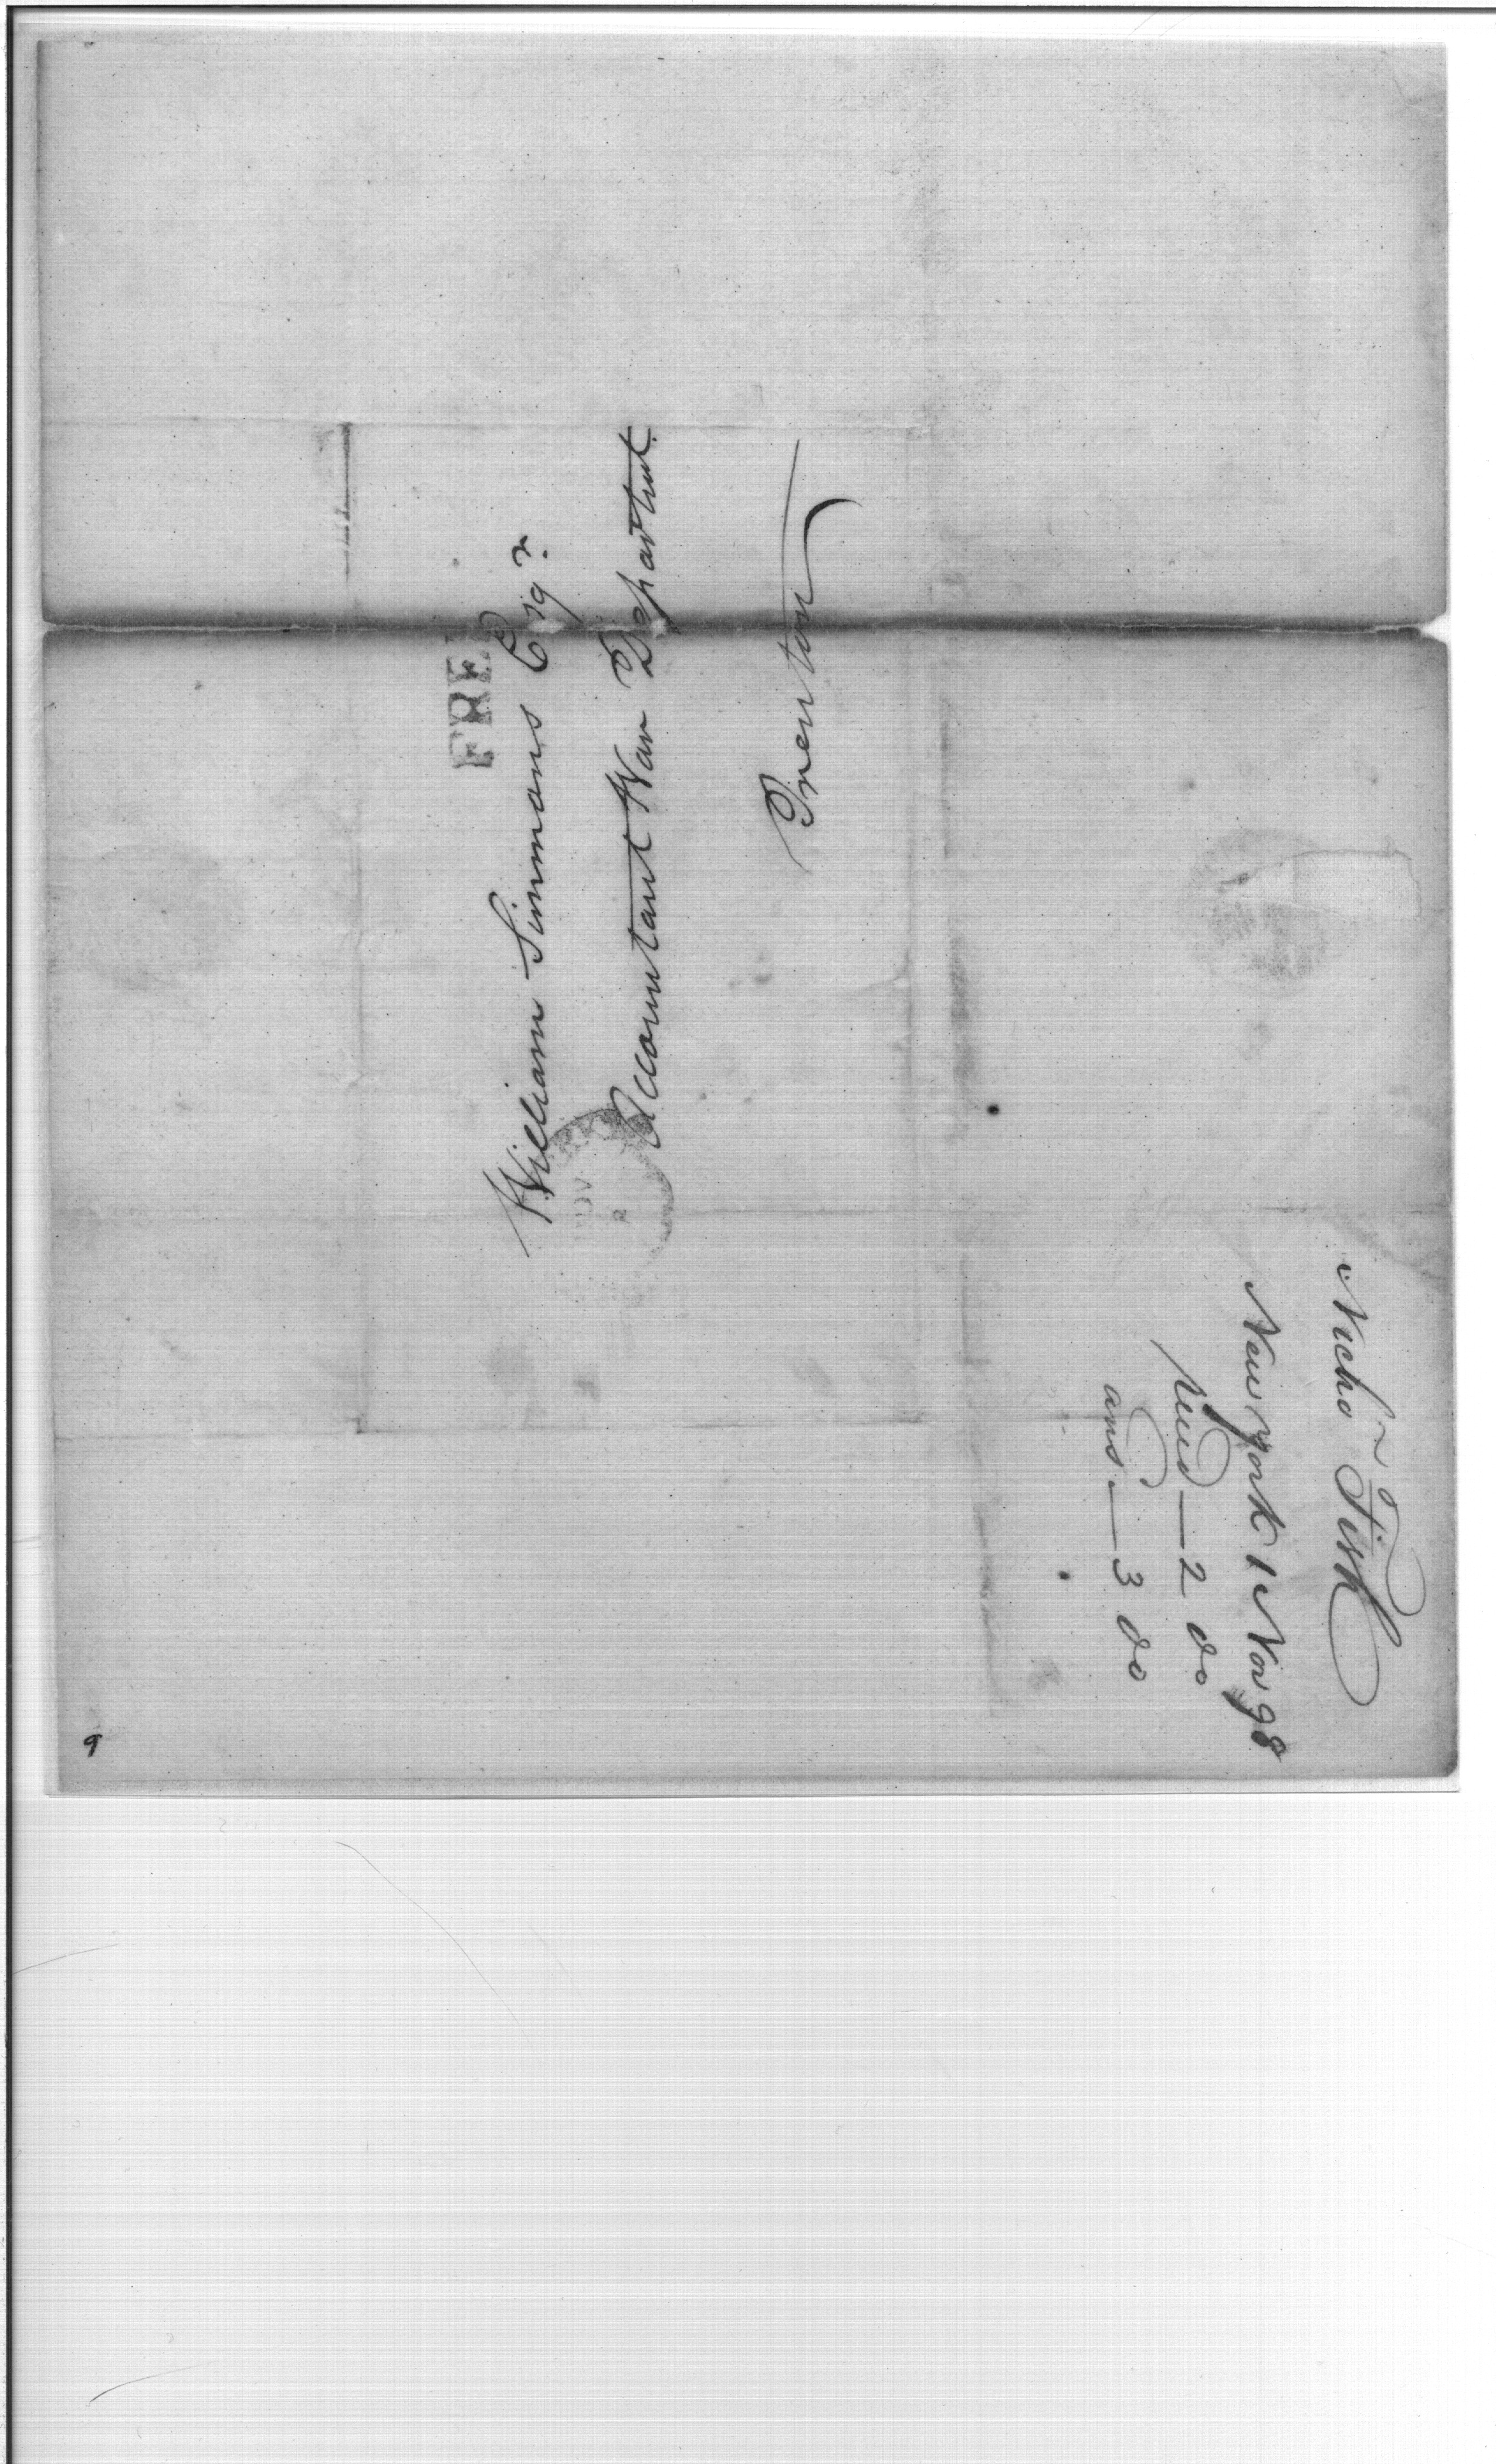 FREE
William Simmons Esqr.
Accountant War Departmt.
Trenton
NOV
Nichs Fish
New York 1 Nov 98
recd — 2 do
ans. — 3 do
9